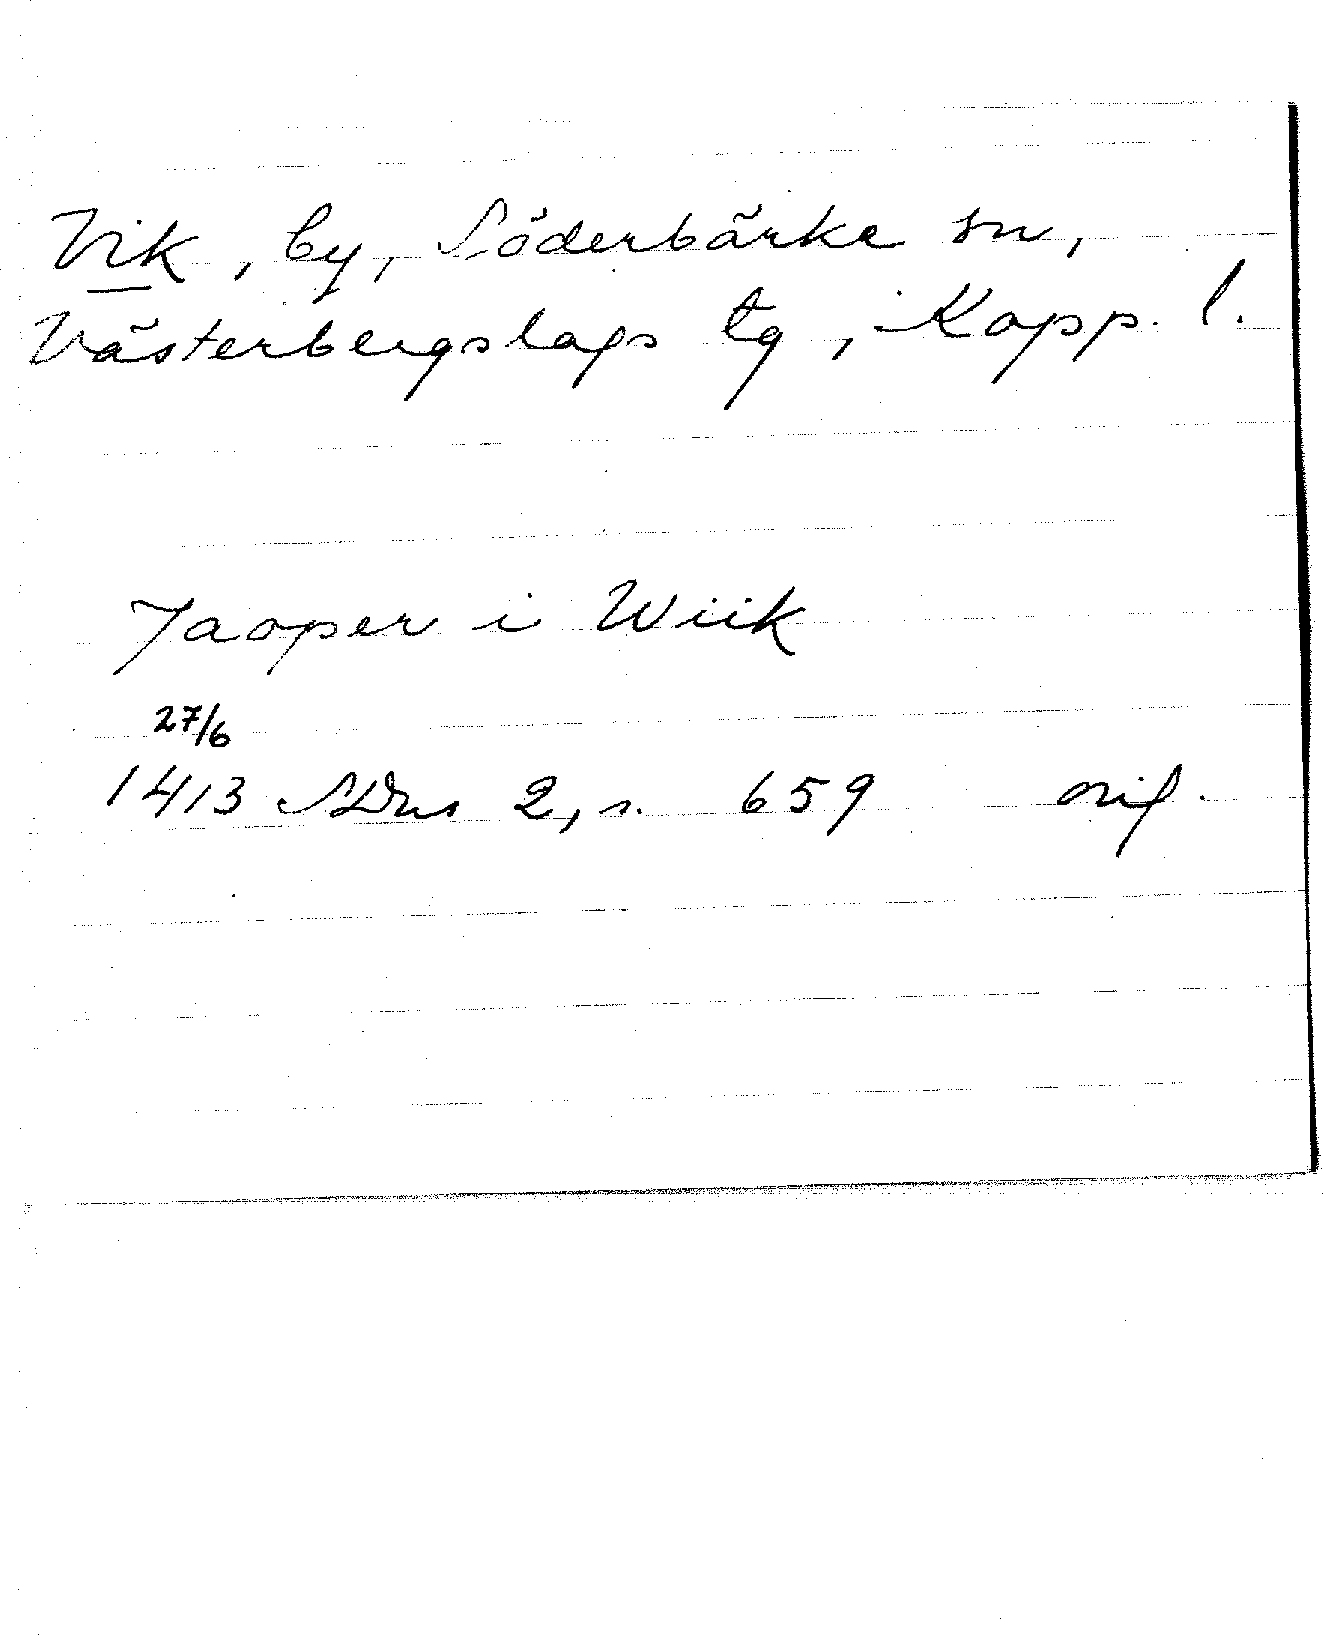 Vik, by, Söderbärke sn,
Västerbergslags tg, Kopp. l.
Jasper i Wiik
27/6
1413 SDns 2, s. 659 orig.